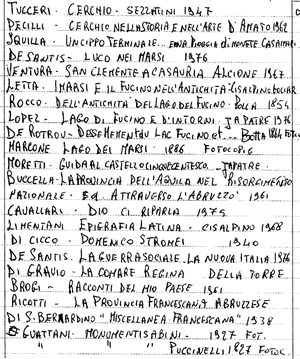 TUCCERI - CERCHIO - SEZZATINI 1947
PECILLI - CERCHIO NELLA STORIA E NELL'ARTE D'AMATO 1962
SQUILLA - UN CIPPO TERMINALE... E UNA PIOGGIA DI MONETE CASAMARI
DE SANTIS - LUCO NEI MARSI 1976
VENTURA - SAN CLEMENTE A CASAURIA ALCIONE 1967
LETTA - I MARSI E IL FUCINO NELL'ANTICHITÀ - CISALPINO GOLIAR
ROCCO - DELL'ANTICHITÀ DEL LAGO DEL FUCINO - POLLA 1854
LOPEZ - LAGO DI FUCINO E D'INTORNI JAPATRE 1976
DE ROTROU - DESSECHEMENT DU LAC FUCINO et - BOTTA 1844 FOTOC
MARCONE LAGO DEI MARSI - 1886 FOTOCOPIE
MORETTI - GUIDA AL CASTELLO CINQUECENTESCO - JAPATRE
BUCCELLA - LA PROVINCIA DELL'AQUILA NEL RISORGIMENTO
NAZIONALE - Ed. ATTRAVERSO L'ABRUZZO 1961
CAVALLARI - DIO CI RIPARLA 1975
LIMENTANI EPIGRAFIA LATINA - CISALPINO 1968
DI CICCO - DOMENICO STROMEI 1940
DE SANTIS - LA GUERRA SOCIALE - LA NUOVA ITALIA 1976
DI GRAVIO - LA COMARE REGINA DELLA TORRE
BROGI - RACCONTI DEL MIO PAESE 1961
RICOTTI - LA PROVINCIA FRANCESCANA ABRUZZESE
DI S. BERNARDINO "MISCELLANEA FRANCESCANA" 1938
GUATTANI - MONUMENTI SABINI - 1927 FOT.
" " " PUCCINELLI 1827 FOTOC.